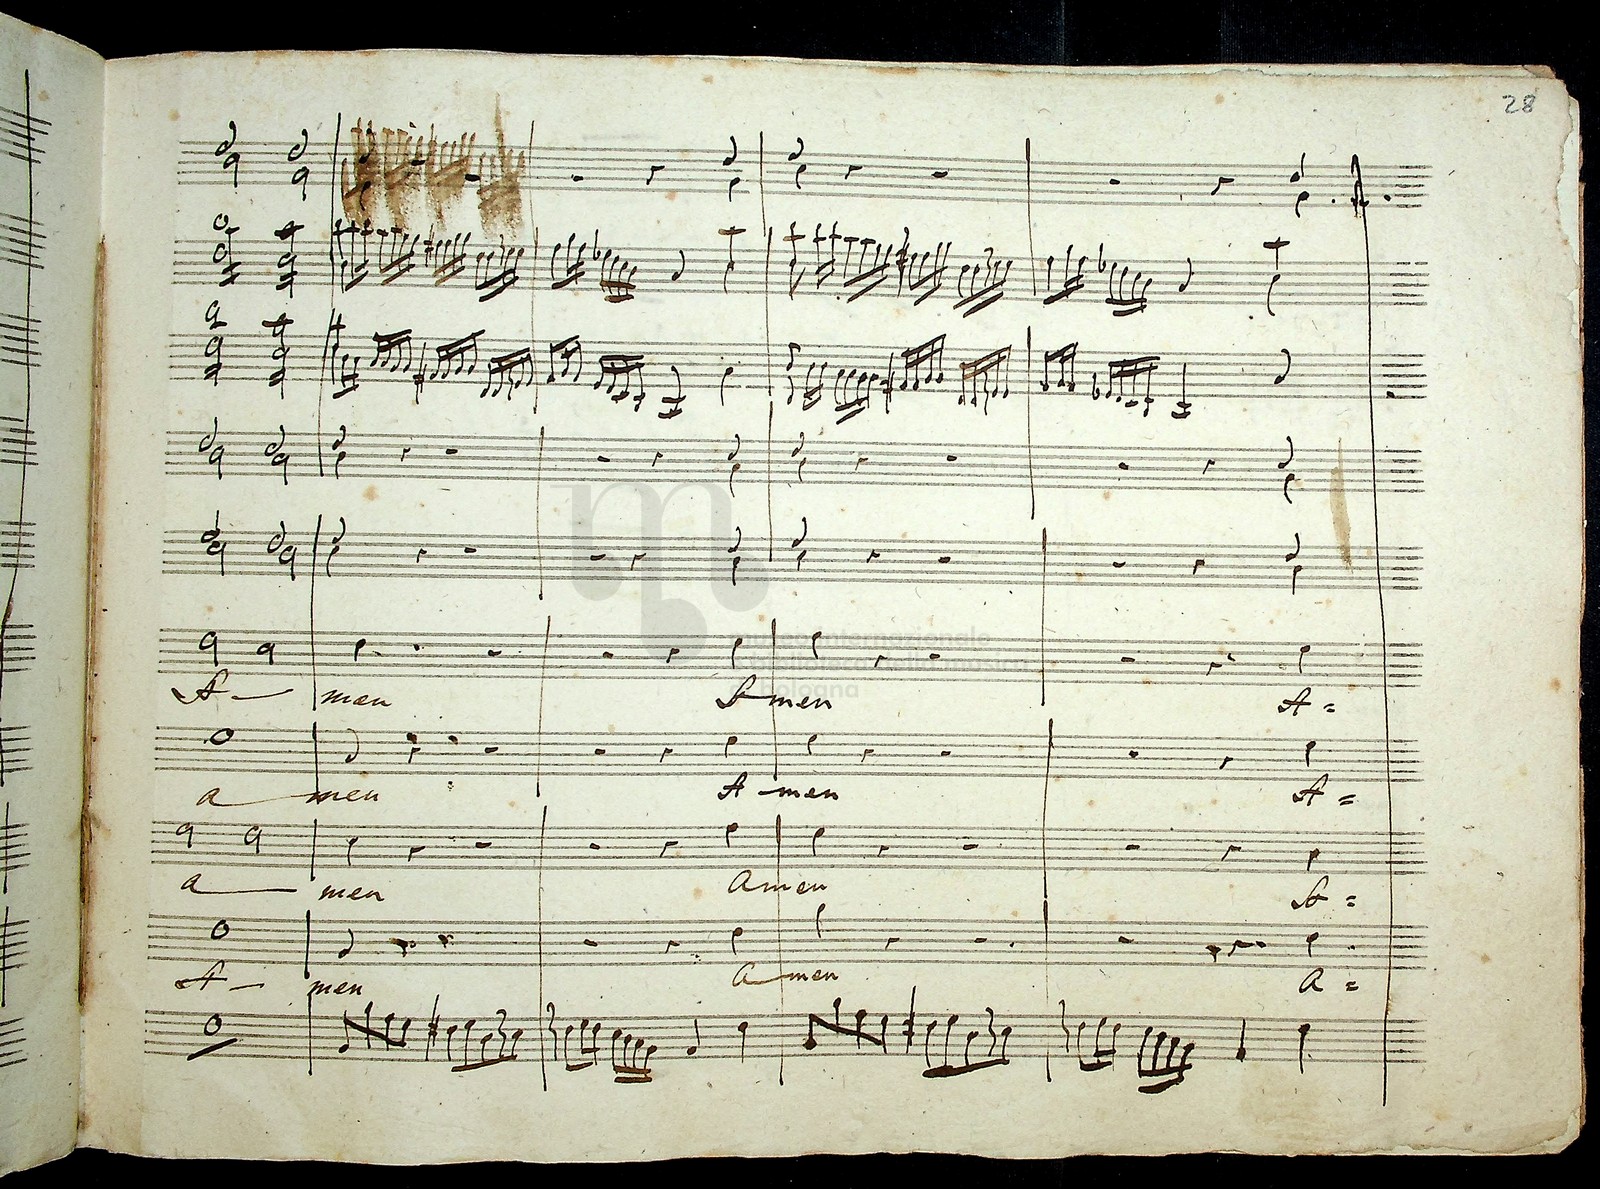 28
museo internazionale
e biblioteca della musica
di bologna
A - men Amen A =
a men A - men A =
a men Amen A =
A - men Amen a =